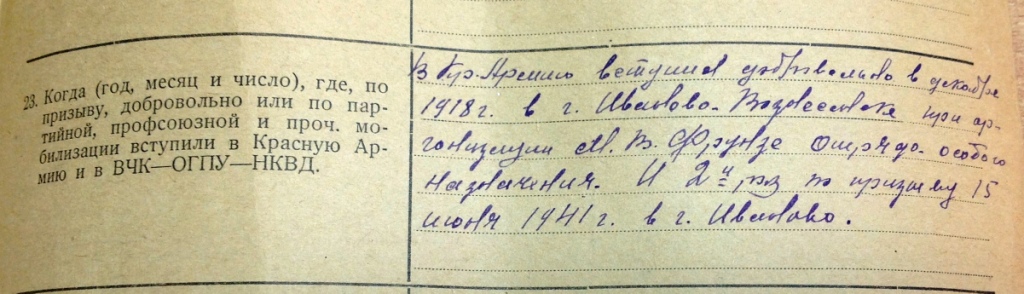 23. Когда (год, месяц и число), где, по
призыву, добровольно или по пар-
тийной, профсоюзной и проч. мо-
билизации вступили в Красную Ар-
мию и в ВЧК—ОГПУ—НКВД.
В Кр. Армию вступил добровольно в декабре
1918 г. в г. Иваново-Вознесенске при ор-
ганизации М. В. Фрунзе отряда особого
назначения. И 2й раз по призыву 15
июня 1941 г. в г. Иваново.